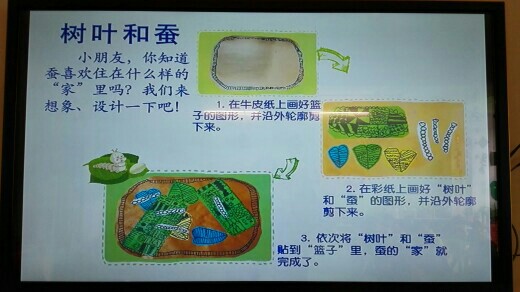 树叶和蚕
小朋友，你知道
蚕喜欢住在什么样的
“家”里吗？我们来
想象、设计一下吧！
1. 在牛皮纸上画好篮
子的图形，并沿外轮廓剪
下来。
2. 在彩纸上画好“树叶”
和“蚕”的图形，并沿轮廓
剪下来。
3. 依次将“树叶”和“蚕”
贴到“篮子”里，蚕的“家”就
完成了。